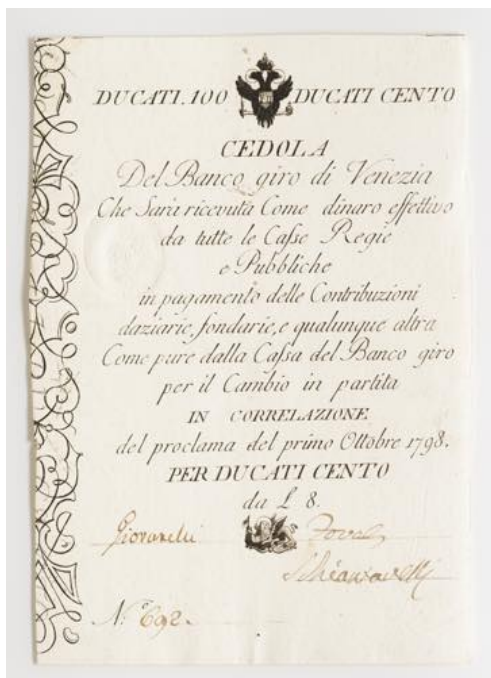 DUCATI. 100 DUCATI CENTO
CEDOLA
Del Banco giro di Venezia
Che Sarà ricevuta Come dinaro effettivo
da tutte le Casse Regie
e Pubbliche
in pagamento delle Contribuzioni
daziarie, fondarie, e qualunque altra
Come pure dalla Cassa del Banco giro
per il Cambio in partita
IN CORRELAZIONE
del proclama del primo Ottobre 1798.
PER DUCATI CENTO
da £ 8.
Giovanelli
N.º 692.